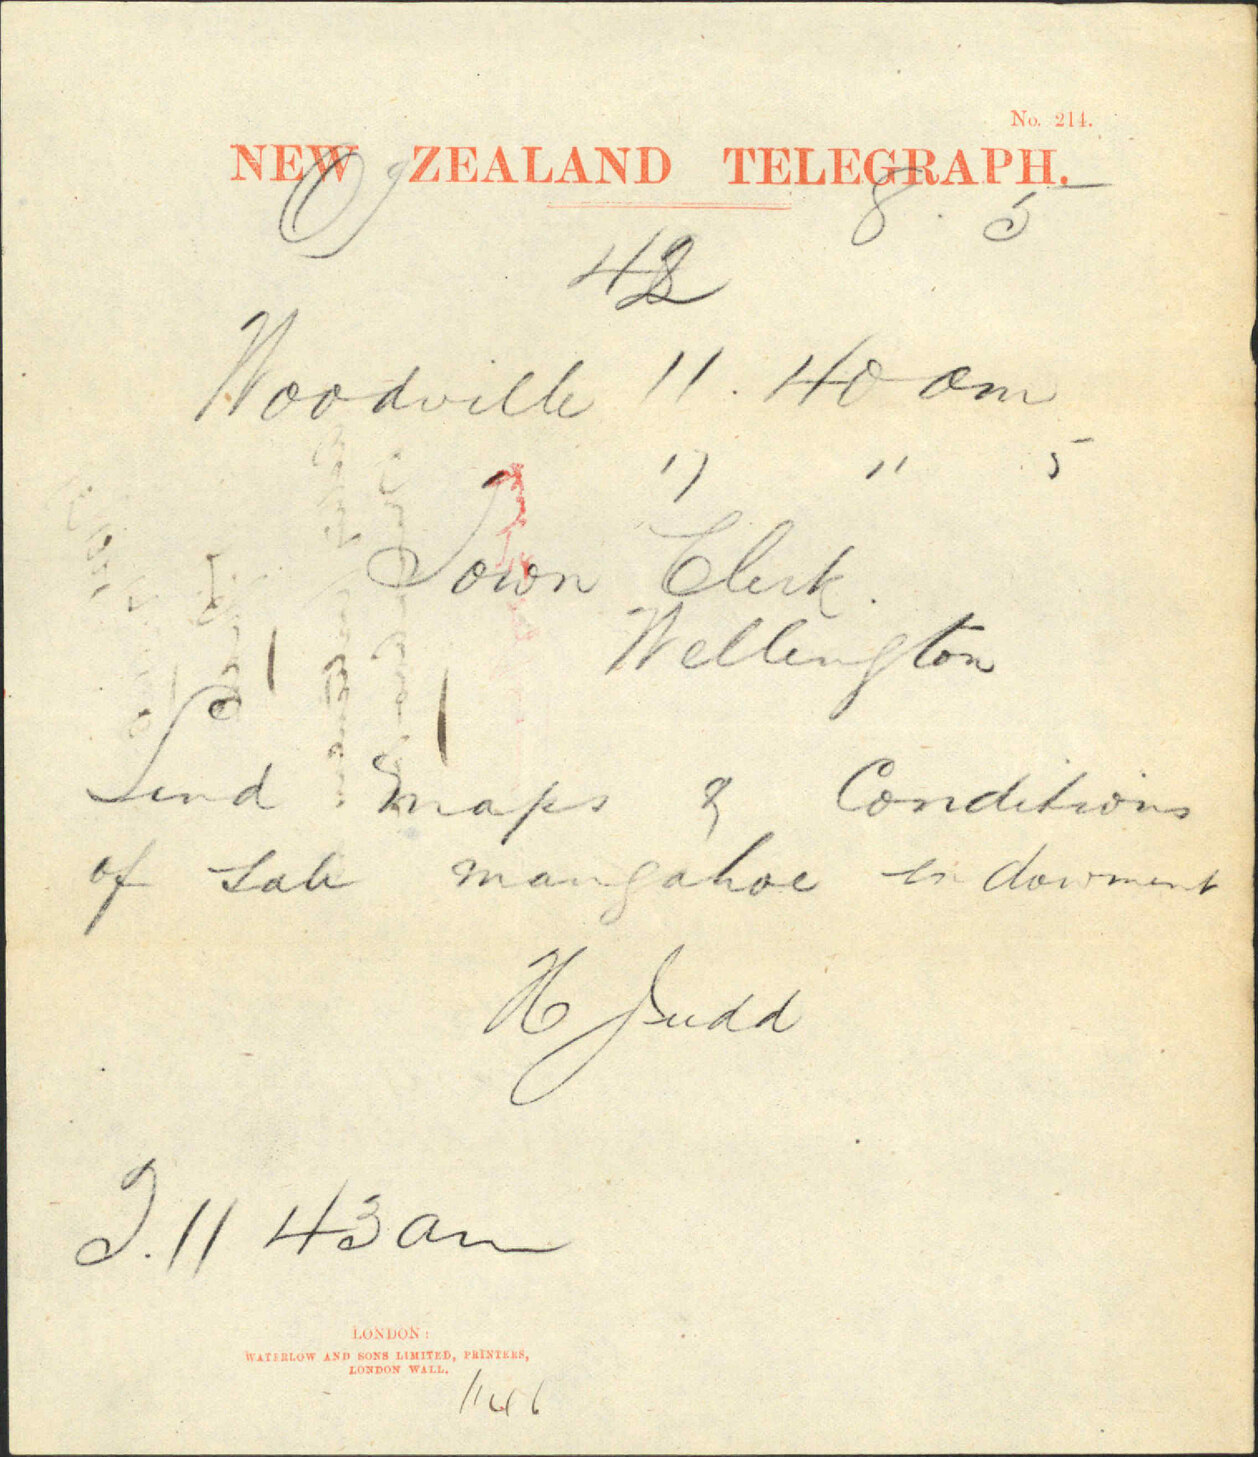 No. 214.
NEW ZEALAND TELEGRAPH.
8.5
Woodville 11.40 am
11 " 5
Town Clerk.
Wellington
Send maps & Conditions
of sale mangahoe endowment
H Judd
11 43 am
LONDON:
WATERLOW AND SONS LIMITED, PRINTERS,
LONDON WALL.